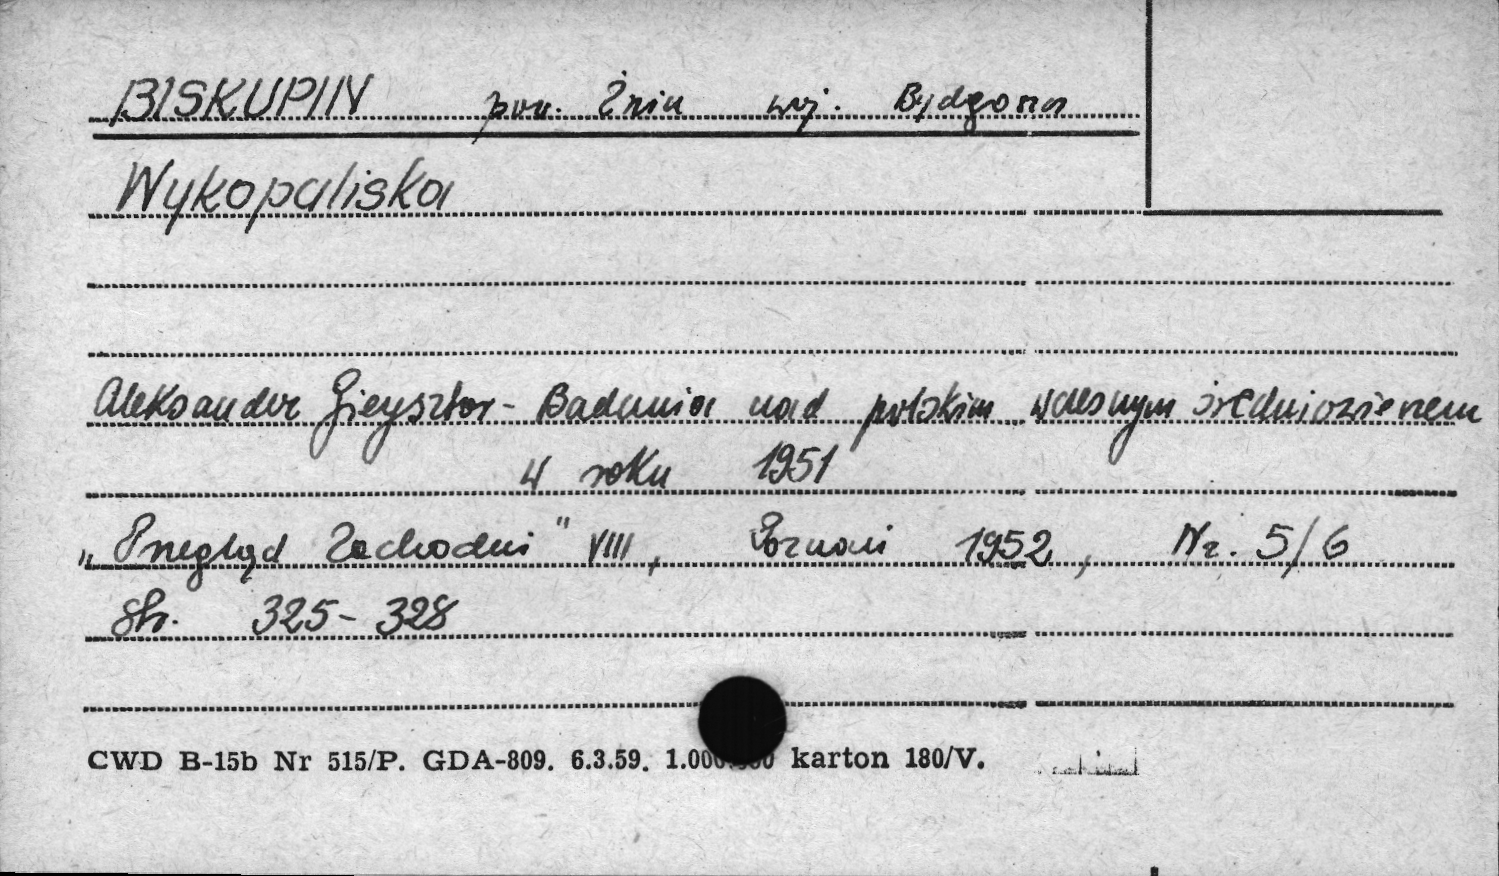 BISKUPIN pow. Żnin woj. Bydgoszcz
Wykopaliska
Aleksander Gieysztor - Badania nad polskim wczesnym średniowieczem
w roku 1951
„Przegląd Zachodni" VIII, Poznań 1952, Nr. 5/6
str. 325-328
CWD B-15b Nr 515/P. GDA-809. 6.3.59. karton 180/V.